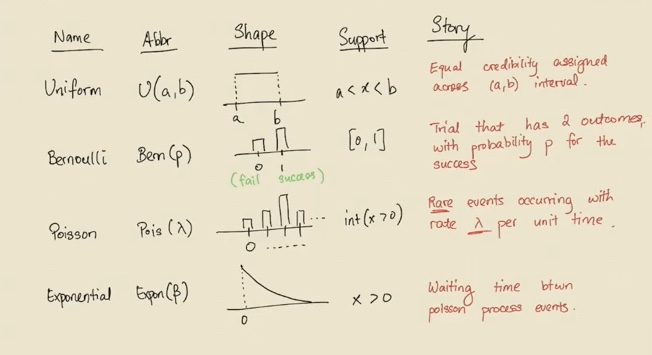 Name Abbr Shape Support Story
Uniform U(a,b) a b a < x < b Equal credibility assigned
across (a,b) interval.
Bernoulli Bern(p) 0 1 [0,1] Trial that has 2 outcomes,
with probability p for the
success
(fail success)
Poisson Pois(λ) 0 ...... .... int(x>0) Rare events occurring with
rate λ per unit time.
Exponential Expon(β) 0 x > 0 Waiting time btwn
poisson process events.